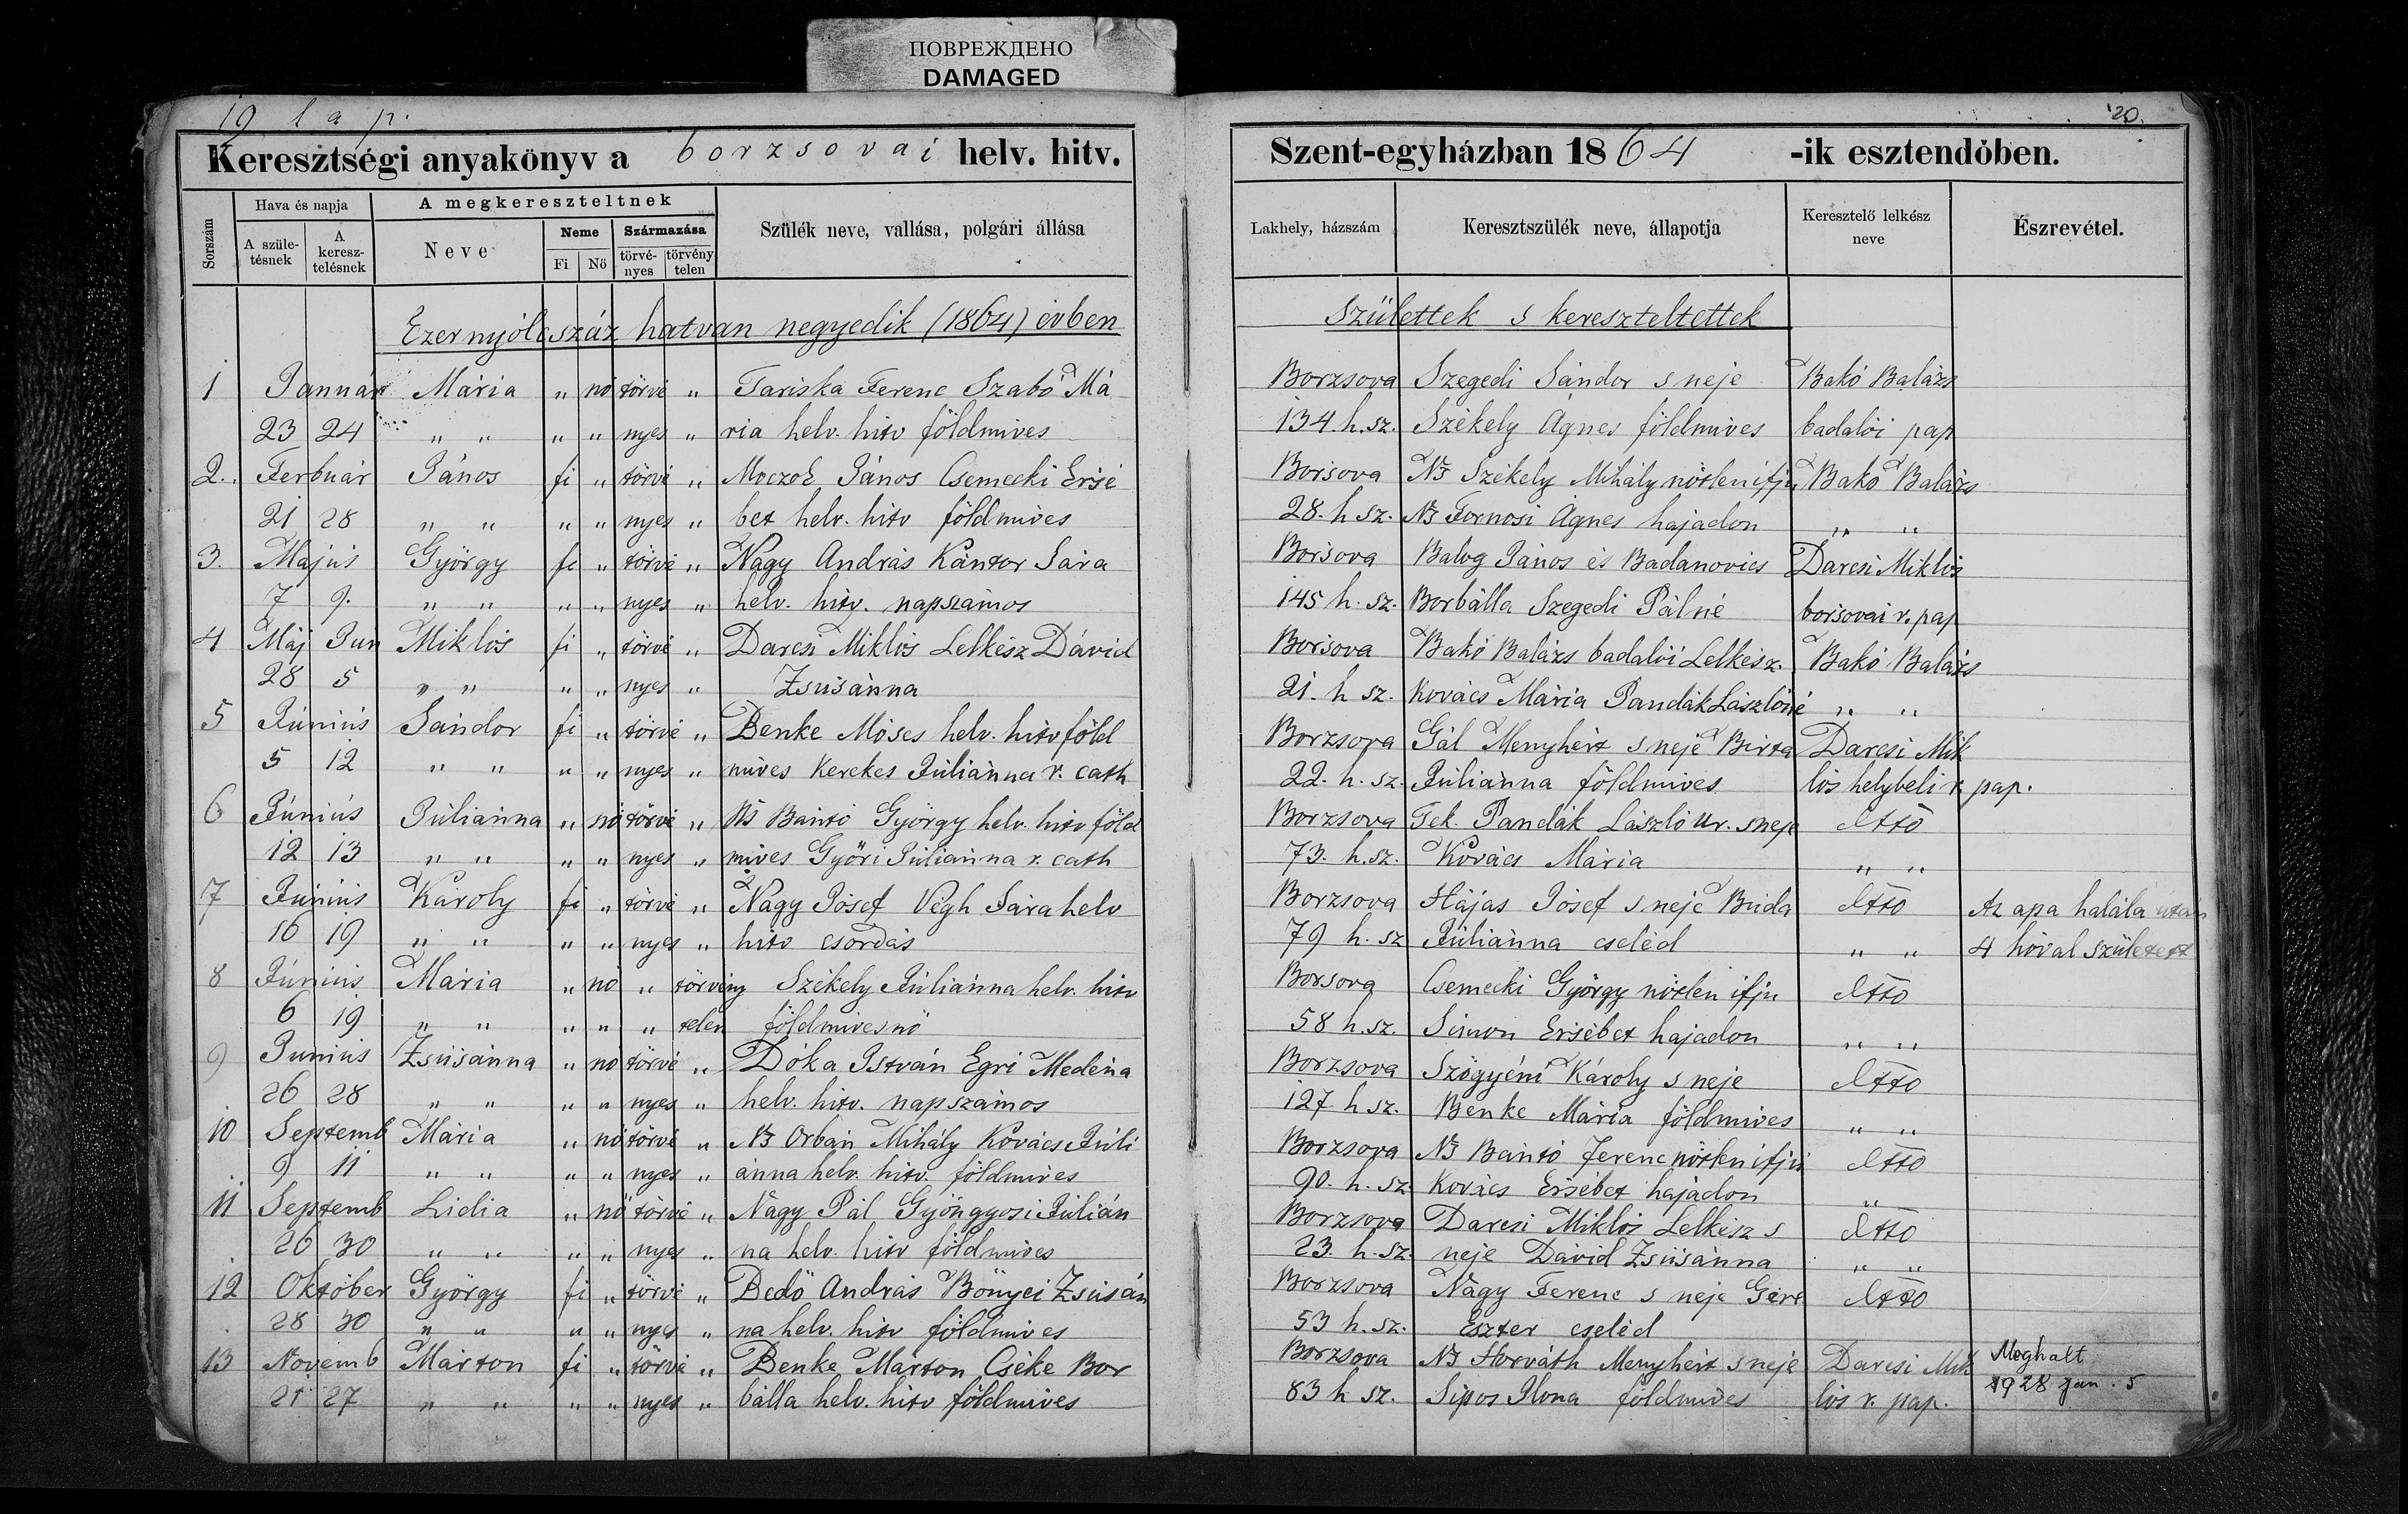 ПОВРЕЖДЕНО
DAMAGED
19 lap.
20.
Keresztségi anyakönyv a borzsovai helv. hitv.
Szent-egyházban 1864 -ik esztendőben.
Sorszám
Hava és napja
A szüle-tésnek
A keresz-telésnek
A megkereszteltnek
Neve
Neme
Fi Nö
Származása
törvé-nyes
törvény telen
Szülék neve, vallása, polgári állása
Lakhely, házszám
Keresztszülék neve, állapotja
Keresztelő lelkész neve
Észrevétel.
Ezernyólcszáz hatvan negyedik (1864) évben Születtek s kereszteltettek
1 Január Mária " nő törvé " Tariska Ferenc Szabó Má Borzsova Szegedi Sándor s neje Bakó Balázs
23 24 " " " " nyes " ria helv. hitv földmives 134 h. sz. Székely Ágnes földmives badalói pap
2. Ferbuár János fi " törvé " Moczok János Csemecki Ersé Borsova Ns Székely Mihály nőtlen ifju Bakó Balázs
21 28 " " " " nyes " bet helv. hitv földmives 28. h sz. Ns Tornosi Ágnes hajadon " "
3. Május György fi " törvé " Nagy András Kántor Sára Borsova Balog János és Badanovics Darcsi Miklós
7 9. " " " " nyes " helv. hitv. napszámos 145 h. sz. Borbálla Szegedi Pálné borsovai r. pap
4 Máj Jún Miklós fi " törvé " Darcsi Miklós Lelkész Dávid Borsova Bakó Balázs badalói Lelkész. Bakó Balázs
28 5 " " " " nyes " Zsusánna 21. h sz. Kovács Mária Jandák Lászlóné " "
5 Június Sándor fi " törvé " Benke Móses helv. hitv föld Borzsova Gál Menyhért s neje Birta Darcsi Mik
5 12 " " " " nyes " mives Kerekes Júliánna r. cath 22. h. sz. Júliánna földmives lós helybeli r. pap.
6 Június Júliánna " nő törvé " Ns Bántó György helv. hitv föld Borzsova Tek. Jandák László Ur. s neje dtto
12 13 " " " " nyes " mives Győri Júliánna r. cath 73. h. sz. Kovács Mária " "
7 Június Károly fi " törvé " Nagy Jósef Végh Sára helv Borzsova Hájas Jósef s neje Buda dtto Az apa halála után
16 19 " " " " nyes " hitv csordás 79 h. sz Júliánna cseléd " " 4 hóval született
8 Június Mária " nő " törvény Székely Júliánna helv. hitv Borsova Csemecki György nőtlen ifju dtto
6 19 " " " " " telen földmivesnő 58 h. sz. Simon Ersébet hajadon " "
9 Junius Zsusánna " nő törvé " Dóka István Egri Medena Borzsova Szögyéni Károly s neje dtto
26 28 " " " " nyes " helv. hitv. napszámos 127. h sz. Benke Mária földmives " "
10 Septemb Mária " nő törvé " Ns Orbán Mihály Kovács Júli Borzsova Ns Bántó Ferenc nőtlen ifjú dtto
9 11 " " " " nyes " ánna helv. hitv. földmives 90. h. sz. Kovács Ersébet hajadon "
11 Septemb Lidia " nő törvé " Nagy Pál Gyöngyosi Júlián Borzsova Darcsi Miklós Lelkész s dtto
26 30 " " " " nyes " na helv. hitv földmives 23. h. sz. neje Dávid Zsusánna " "
12 Október György fi " törvé " Dedő András Bönyei Zsusán Borzsova Nagy Ferenc s neje Gere dtto
28 30 " " " " nyes " na helv. hitv földmives 53 h. sz. Eszter cseléd
13 Novemb Márton fi " törvé " Benke Márton Cséke Bor Borzsova Ns Horváth Menyhért s neje Darcsi Mik Meghalt
21 27 " " " " nyes " bálla helv. hitv földmives 83 h sz. Sipos Ilona földmives lós r. pap. 1928 jan. 5